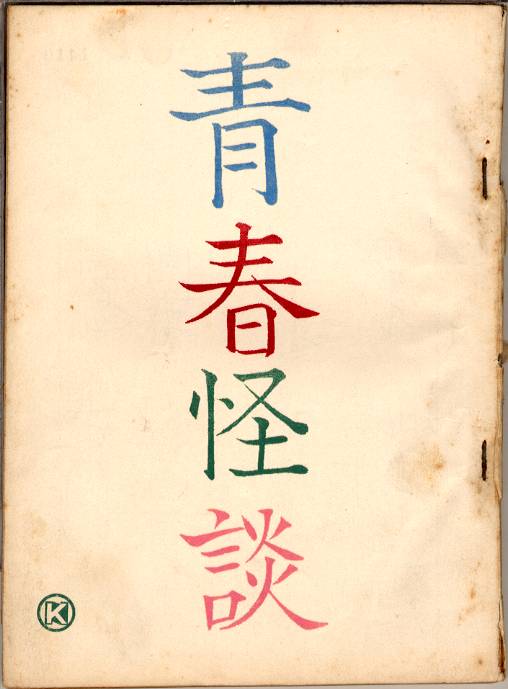 青春怪談
K